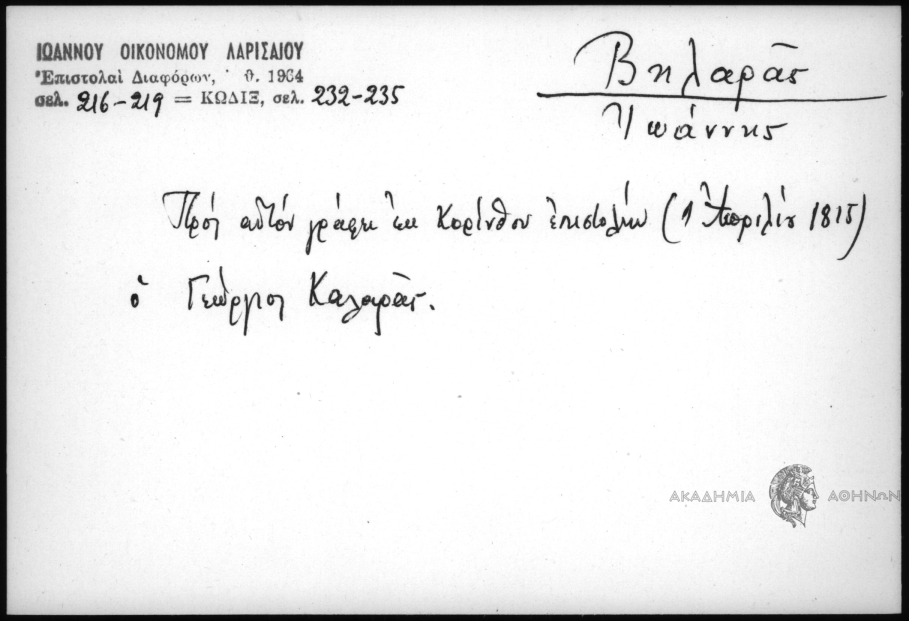 ΙΩΑΝΝΟΥ ΟΙΚΟΝΟΜΟΥ ΛΑΡΙΣΑΙΟΥ
Ἐπιστολαὶ Διαφόρων, θ. 1964
σελ. 216-219 = ΚΩΔΙΞ, σελ. 232-235
Βηλαρᾶς
Ἰωάννης
Πρὸς αὐτὸν γράφει ἐκ Κορίνθου ἐπιστολὴν (1 Ἀπριλίου 1815)
ὁ Γεώργιος Καλαρᾶς.
ΑΚΑΔΗΜΙΑ ΑΘΗΝΩΝ